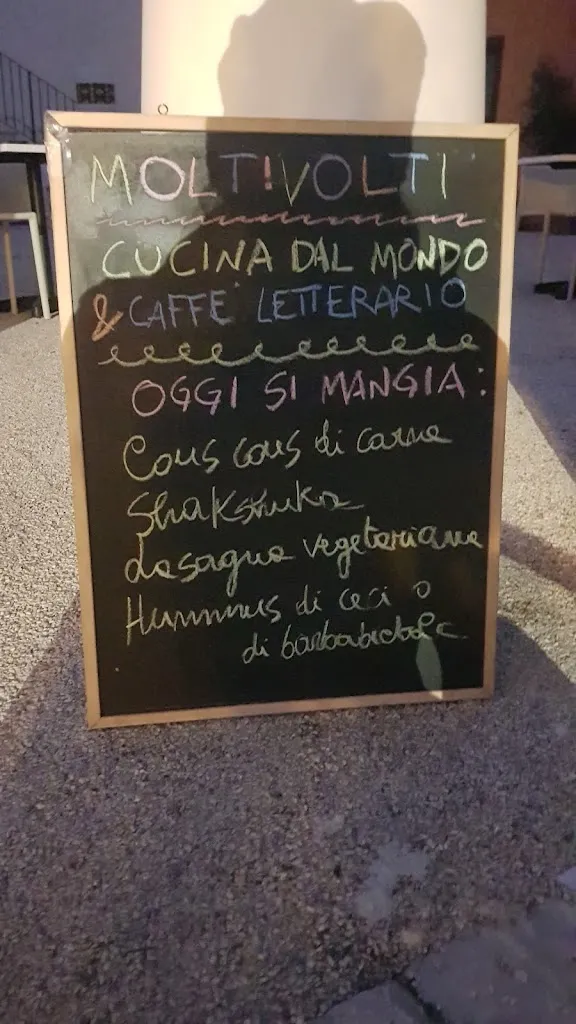 MOLTIVOLTI
CUCINA DAL MONDO
& CAFFE' LETTERARIO
OGGI SI MANGIA:
Cous cous di carne
Shakshuka
Lasagne vegetariane
Hummus di ceci o
di barbabietola